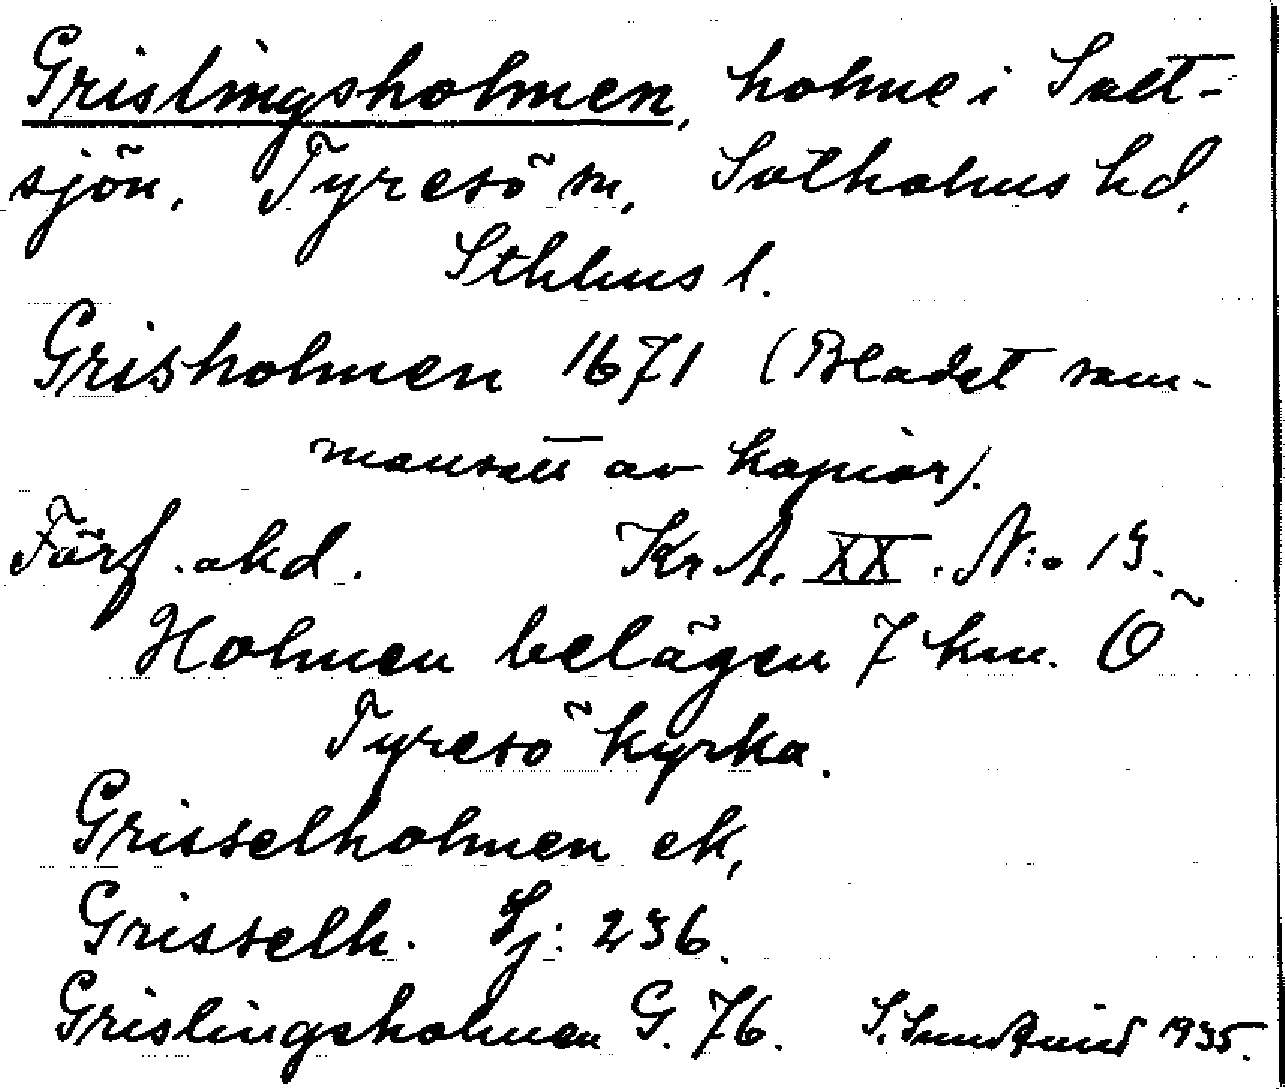 Grislingsholmen, holme i Salt-
sjön. Tyresö sn, Sotholms hd,
Sthlms l.
Grisholmen 1671 (Bladet sam-
mansatt av kopior).
Förf. okd. Kr. A. XX. N:o 13.
Holmen belägen 7 km. Ö
Tyresö kyrka.
Grisselholmen ek,
Grisselh. Sj: 236.
Grislingsholmen G. 76. S. 1935.